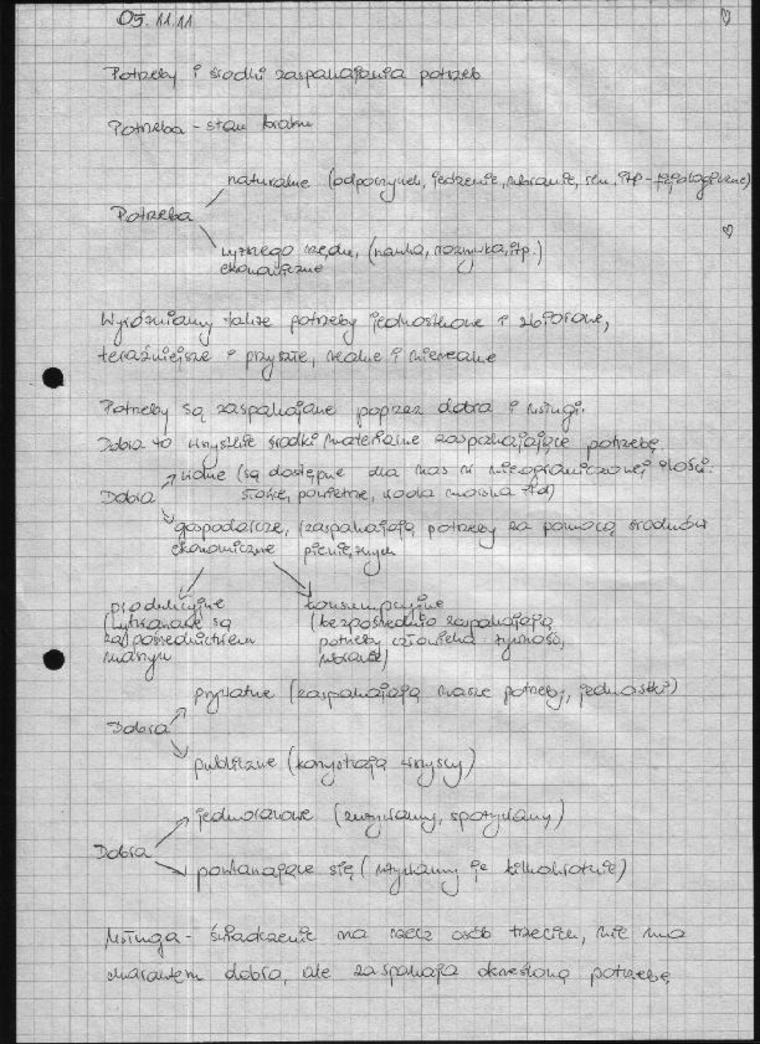 05.11.11
Potrzeby i środki zaspakajania potrzeb
Potrzeba - stan braku
naturalne (odpoczynek, jedzenie, ubranie, sen, itp - fizjologiczne)
Potrzeba
wyższego rzędu, (nauka, rozrywka, itp.)
ekonomiczne
Wyróżniamy także potrzeby jednostkowe i zbiorowe,
teraźniejsze i przyszłe, realne i nierealne
Potrzeby są zaspakajane poprzez dobra i usługi.
Dobra to wszystkie środki materialne zaspakajające potrzebę
wolne (są dostępne dla nas w nieograniczonej ilości:
Dobra
słońce, powietrze, woda morska itd)
gospodarcze, (zaspakajają potrzeby za pomocą środków
ekonomiczne pieniężnych
produkcyjne konsumpcyjne
(wytwarzane są (bezpośrednio zaspakajają
za pośrednictwem potrzeby człowieka - żywność,
maszyn ubranie)
prywatne (zaspakajają nasze potrzeby, jednostki)
Dobra
publiczne (korzystają wszyscy)
jednorazowe (zużywamy, spożywamy)
Dobra
powtarzające się (używamy je kilkukrotnie)
Usługa - świadczenie na rzecz osób trzecich, nie ma
charakteru dobra, ale zaspakaja określoną potrzebę